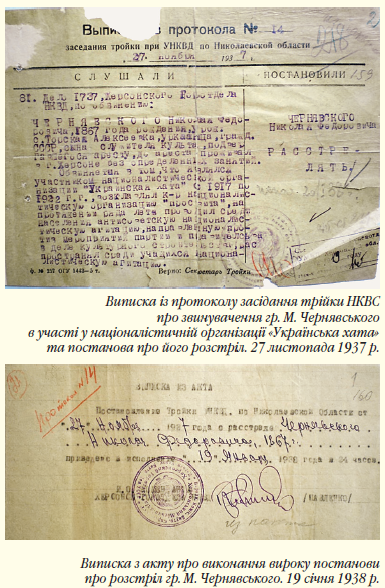 Выписка из протокола № 14
заседания тройки при УНКВД по Николаевской области
27 ноября 1937
СЛУШАЛИ
ПОСТАНОВИЛИ
159
81. Дело 1737, Херсонского Горотдела
НКВД, по обвинению:
ЧЕРНЯВСКОГО Николая Федо-
ровича, 1867 года рождения, урож.
ЧЕРНЯВСКОГО
Николая Федоровича
РАССТРЕ-
ЛЯТЬ
ССР, сына служителя культа,
Обвиняется в том, что являлся
участником националистической орга-
низации "Украинская хата" с 1917 по
1922 г.г., возглавлял к-р национали-
стическую организацию "просвита", на
протяжении ряда лет проводил среди
населения антисоветскую национали-
стическую агитацию,
мероприятий партии и правительства
в деле культурного строительства,
среди учащихся национа-
листическую агитацию.
Верно: Секретарь Тройки
Виписка із протоколу засідання трійки НКВС
про звинувачення гр. М. Чернявського
в участі у націоналістичній організації «Українська хата»
та постанова про його розстріл. 27 листопада 1937 р.
Протокол № 14
ВЫПИСКА ИЗ АКТА
1
160
Постановление Тройки УНКВД по Николаевской области от
"27" Ноября 1937 о расстреле Чернявского
Николая Федоровича, 1867 г.
приведено в исполнение "19" Января 1938 в 24 часов.
Виписка з акту про виконання вироку постанови
про розстріл гр. М. Чернявського. 19 січня 1938 р.